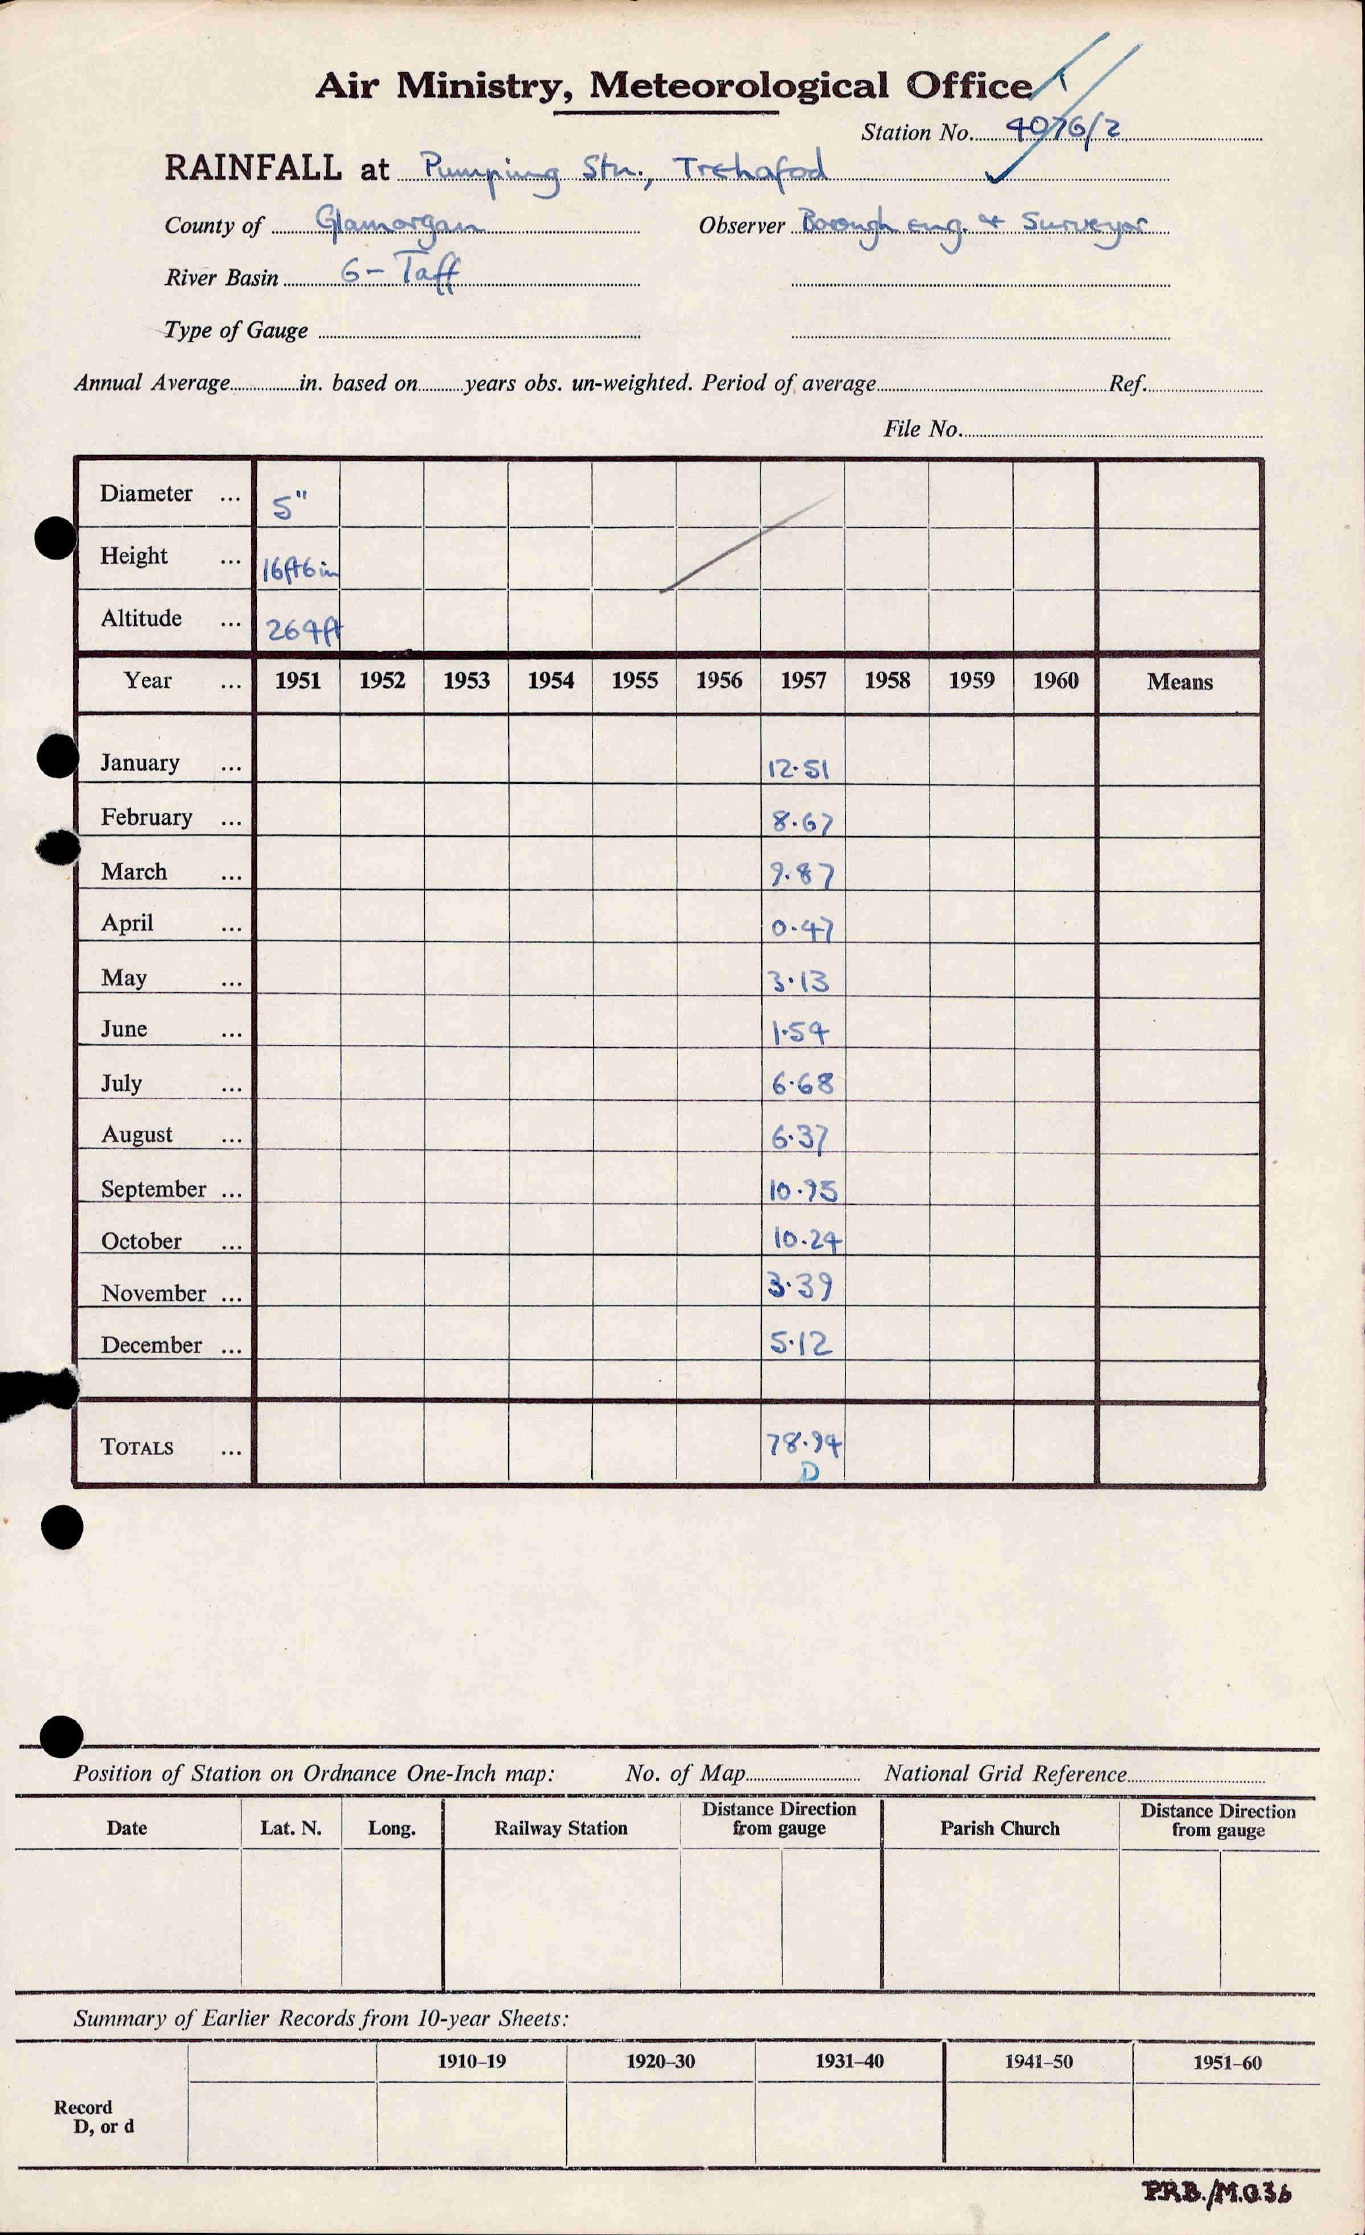 Air Ministry, Meteorological Office
Station No. 4076/2
RAINFALL at Pumping Stn., Trehafod
County of Glamorgan Observer Borough Eng. & Surveyor
River Basin 6 - Taff
Type of Gauge
Annual Average in. based on years obs. un-weighted. Period of average Ref.
File No.
Diameter ... 5"
Height ... 16ft6in
Altitude ... 264ft
Year ... 1951 1952 1953 1954 1955 1956 1957 1958 1959 1960 Means
January ... 12.51
February ... 8.67
March ... 9.87
April ... 0.47
May ... 3.13
June ... 1.54
July ... 6.68
August ... 6.37
September ... 10.95
October ... 10.24
November ... 3.39
December ... 5.12
TOTALS ... 78.94
D
Position of Station on Ordnance One-Inch map: No. of Map National Grid Reference
Date Lat. N. Long. Railway Station Distance Direction from gauge Parish Church Distance Direction from gauge
Summary of Earlier Records from 10-year Sheets:
1910–19 1920–30 1931–40 1941–50 1951–60
Record
D, or d
P.R.B./M.O.36